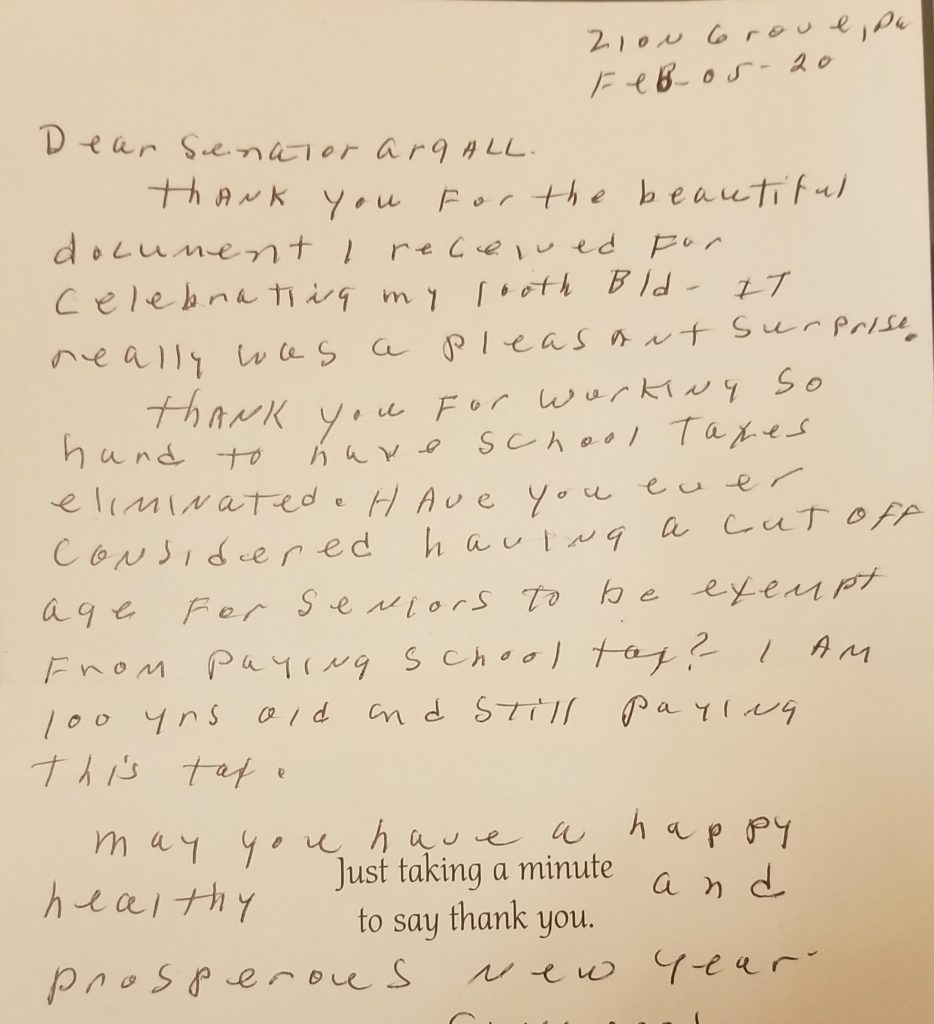 Zion Grove, Pa
Feb-05-20
Dear Senator Argall.
Thank you for the beautiful
document I received for
celebrating my 100th B/d - It
really was a pleasant surprise.
Thank you for working so
hard to have school taxes
eliminated. Have you ever
considered having a cut off
age for seniors to be exempt
from paying school tax? I am
100 yrs old and still paying
this tax.
May you have a happy
healthy and
Just taking a minute
to say thank you.
prosperous New Year-